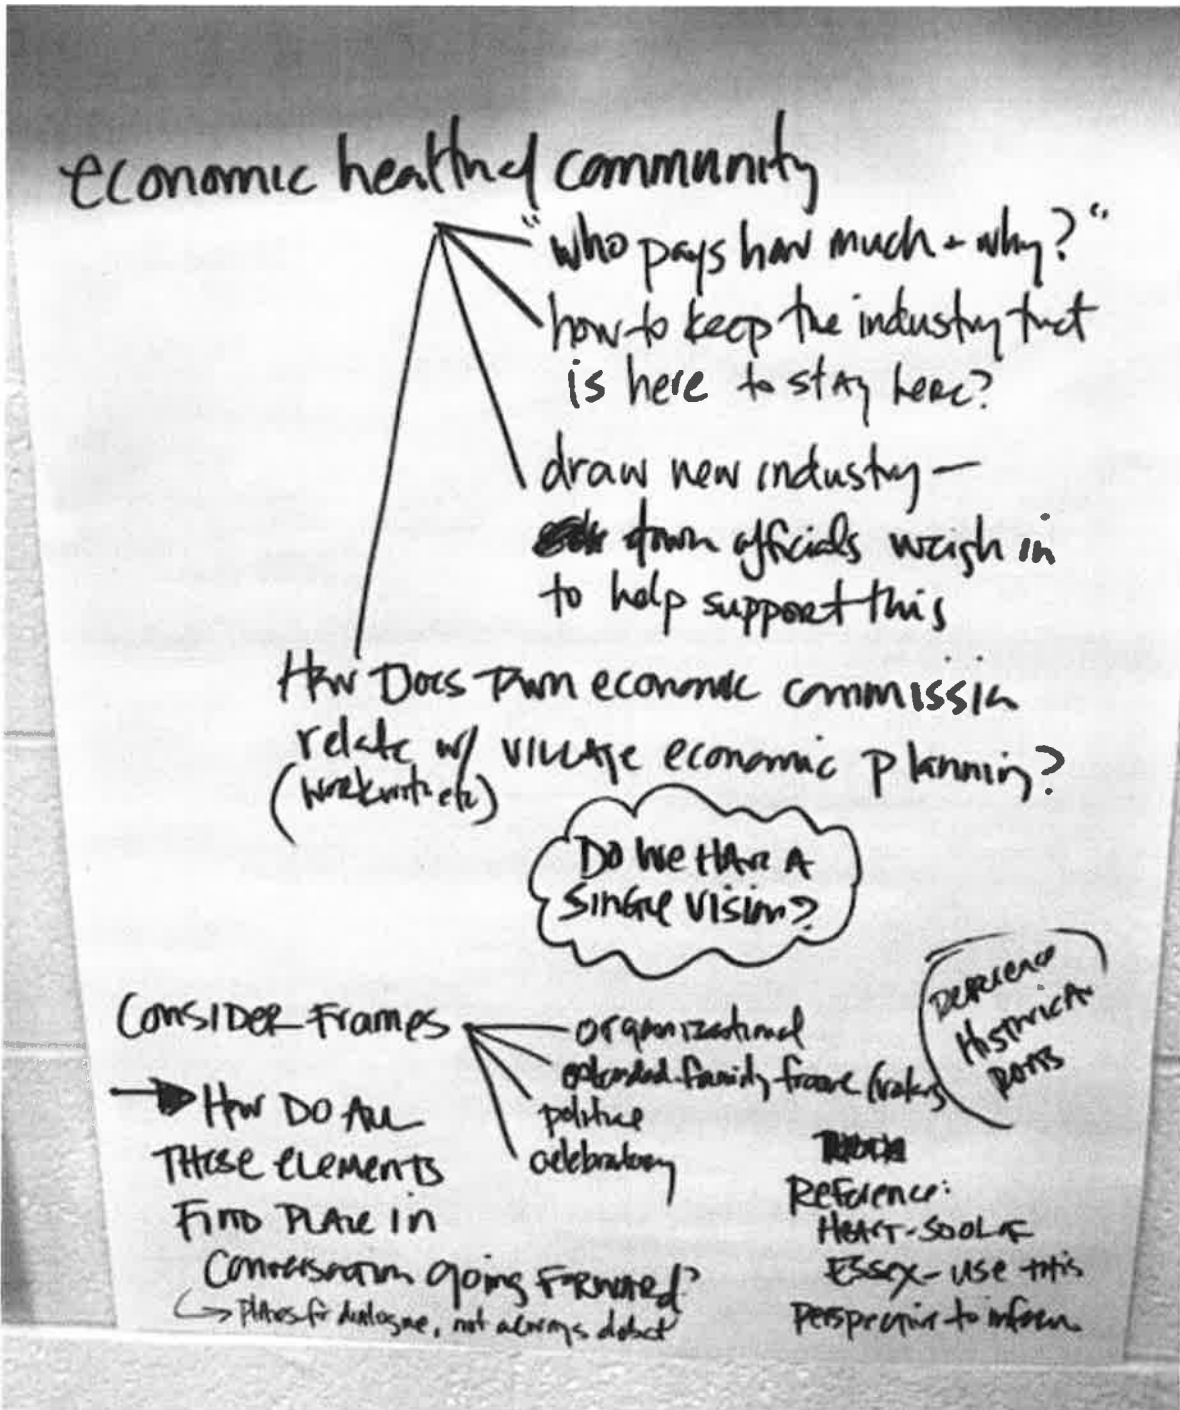 economic health of community
"who pays how much + why?"
how to keep the industry that
is here to stay here?
draw new industry —
town officials weigh in
to help support this
How Does Town economic commission
relate w/ village economic planning?
(work with etc)
Do We Have A
Single Vision?
Consider Frames
organizational
extended family frame
political
celebratory
How Do All
These elements
Find Place in
Conversation going Forward?
Places for dialogue, not always debate
Historical
Reference:
Heart + Soul of
Essex - use this
perspective to inform